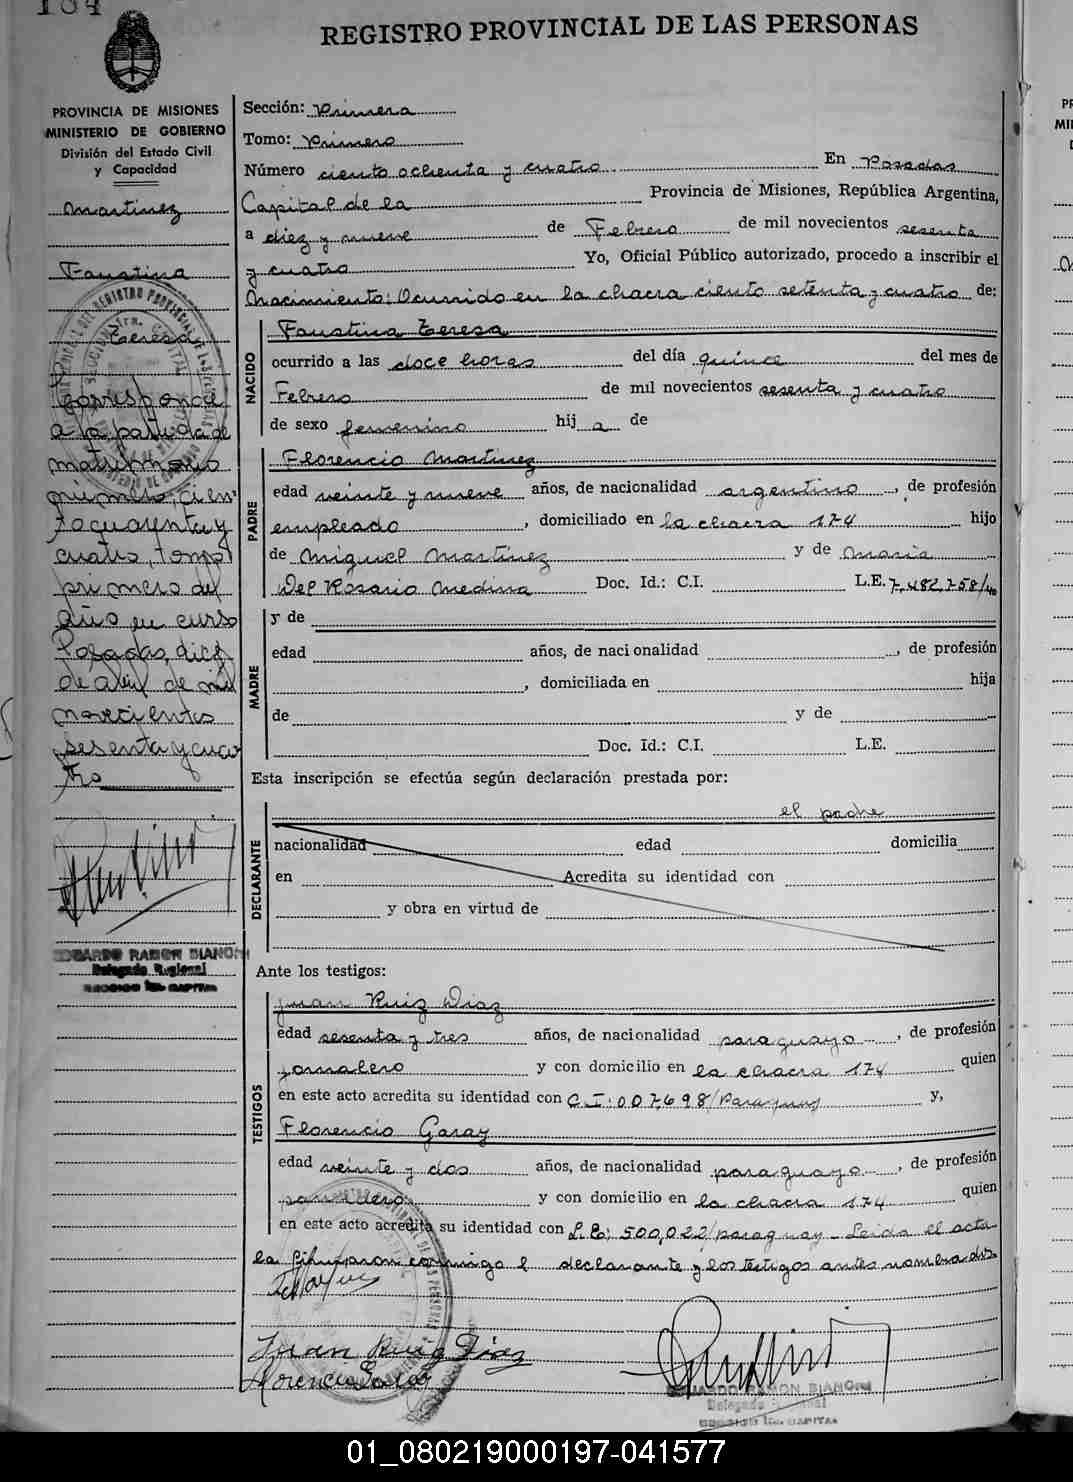 184
REGISTRO PROVINCIAL DE LAS PERSONAS
PROVINCIA DE MISIONES
MINISTERIO DE GOBIERNO
División del Estado Civil
y Capacidad
Martinez
Faustina
Teresa
Corresponde
a la partida de
matrimonio
número, cien-
to cuarenta y
cuatro, tomo
primero del
año en curso
Posadas, diez
de abril de mil
novecientos
sesenta y cua
tro
EDUARDO RAMON BIANCHI
Delegado Regional
SECCION 1ra. CAPITAL
Sección: Primera
Tomo: Primero
Número ciento ochenta y cuatro En Posadas
Capital de la Provincia de Misiones, República Argentina,
a diez y nueve de Febrero de mil novecientos sesenta
y cuatro Yo, Oficial Público autorizado, procedo a inscribir el
Nacimiento: Ocurrido en la chacra ciento setenta y cuatro de:
NACIDO
Faustina Teresa
ocurrido a las doce horas del día quince del mes de
Febrero de mil novecientos sesenta y cuatro
de sexo femenino hij a de
PADRE
Florencio Martinez
edad veinte y nueve años, de nacionalidad argentino, de profesión
empleado, domiciliado en la chacra 174 hijo
de Miguel Martinez y de Maria
Del Rosario Medina Doc. Id.: C.I. L.E. 7.482.758/40
MADRE
y de
edad años, de nacionalidad, de profesión
, domiciliada en hija
de y de
Doc. Id.: C.I. L.E.
Esta inscripción se efectúa según declaración prestada por:
DECLARANTE
el padre
nacionalidad edad domicilia
en Acredita su identidad con
y obra en virtud de
Ante los testigos:
TESTIGOS
Juan Ruiz Diaz
edad sesenta y tres años, de nacionalidad paraguayo, de profesión
jornalero y con domicilio en la chacra 174 quien
en este acto acredita su identidad con C.I: 007,698/Paraguay y,
Florencio Garay
edad veinte y dos años, de nacionalidad paraguayo, de profesión
panadero y con domicilio en la chacra 174 quien
en este acto acredita su identidad con L.E: 500,022/paraguay - Leida el acta
la firmaron conmigo el declarante y los testigos antes nombrados
Juan Ruiz Diaz
Florencio Garay
EDUARDO RAMON BIANCHI
Delegado Regional
SECCION 1ra. CAPITAL
01_080219000197-041577